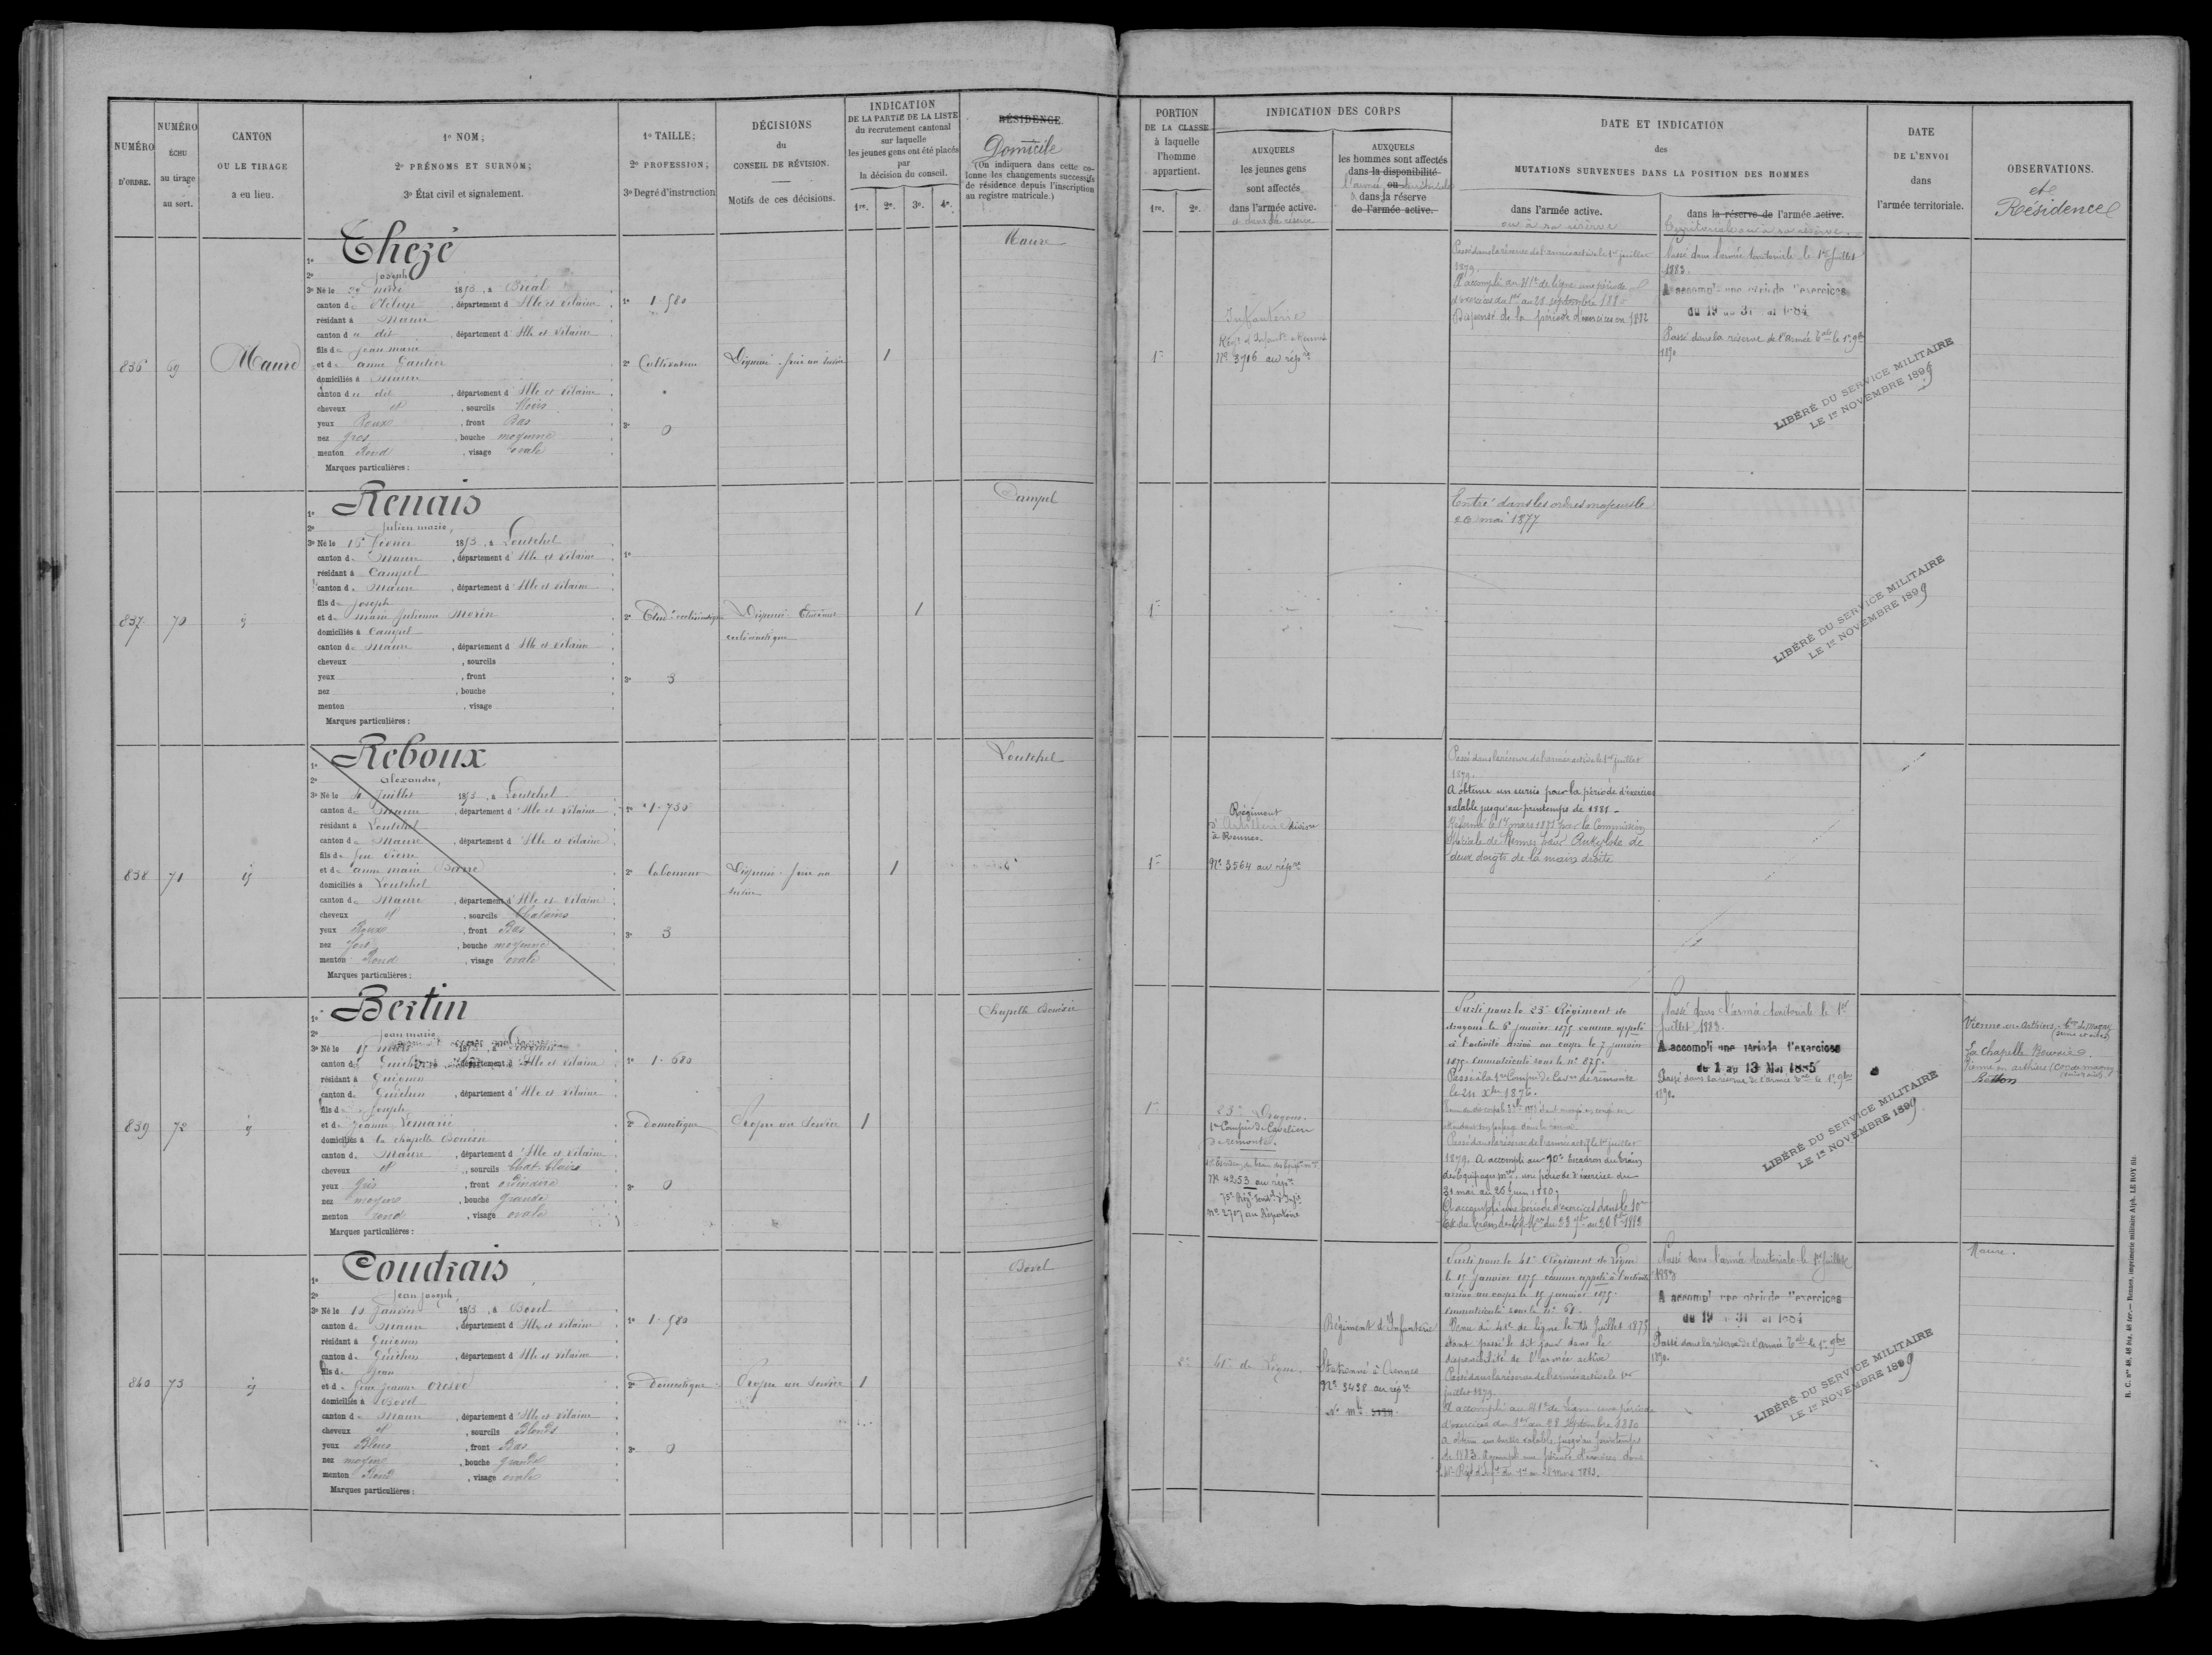 NUMÉRO
D'ORDRE.
NUMÉRO
ÉCHU
au tirage
au sort.
CANTON
OU LE TIRAGE
a eu lieu.
1º NOM;
2º PRÉNOMS ET SURNOM;
3º État civil et signalement.
1º TAILLE;
2º PROFESSION;
3º Degré d'instruction
DÉCISIONS
du
CONSEIL DE RÉVISION.
Motifs de ces décisions.
INDICATION
DE LA PARTIE DE LA LISTE
du recrutement cantonal
sur laquelle
les jeunes gens ont été placés
par
la décision du conseil.
1re. 2e. 3e. 4e.
RÉSIDENCE
Domicile
(On indiquera dans cette co-
lonne les changements successifs
de résidence depuis l'inscription
au registre matricule.)
PORTION
DE LA CLASSE
à laquelle
l'homme
appartient.
1re. 2e.
INDICATION DES CORPS
AUXQUELS
les jeunes gens
sont affectés
dans l'armée active.
et dans la réserve
AUXQUELS
les hommes sont affectés
dans la disponibilité
l'armée ou territoriale
dans la réserve
de l'armée active.
DATE ET INDICATION
des
MUTATIONS SURVENUES DANS LA POSITION DES HOMMES
dans l'armée active.
ou à sa réserve
dans la réserve de l'armée active.
Territoriale ou à sa réserve.
DATE
DE L'ENVOI
dans
l'armée territoriale.
OBSERVATIONS.
et
Résidence
836
69
Maure
1º Thezé
2º Joseph
3º Né le 1853, à Bréal
canton de , département d'Ille et Vilaine
résidant à Maure
canton du dit , département d'Ille et Vilaine
fils de Jean marie
et de anne Gautier
domiciliés à Maure
canton du dit , département d'Ille et Vilaine
cheveux et , sourcils Noirs
yeux Roux , front Bas
nez gros , bouche moyenne
menton Rond , visage ovale
Marques particulières :
1º 1.580
2º Cultivateur
3º 0
1
Maure
1re
Infanterie
Nº 3706 au rép.re
Passé dans la réserve de l'armée active le 1er juillet
1879.
A accompli au 41e de ligne une période
d'exercices du 1er au 28 septembre 1880
Dispensé de la période d'exercices en 1882
Passé dans l'armée territoriale le 1er Juillet
1883.
A accompli une période d'exercices
du 19 au 31 mai 1884
Passé dans la réserve de l'armée Tale le 1er 9bre
1890
LIBÉRÉ DU SERVICE MILITAIRE
LE 1er NOVEMBRE 1899
837
70
1º Renais
2º Julien marie,
3º Né le 16 février 1853, à Loutehel
canton de Maure , département d'Ille et Vilaine
résidant à Campel
canton de Maure , département d'Ille et Vilaine
fils de Joseph
et de marie Julienne Morin
domiciliés à Campel
canton de Maure , département d'Ille et Vilaine
cheveux , sourcils
yeux , front
nez , bouche
menton , visage
Marques particulières :
1º
2º Etud.t ecclésiastique
3º 3
Dispensé Étudiant
ecclésiastique
1
Campel
1re
Entré dans les ordres majeurs le
26 mai 1877
LIBÉRÉ DU SERVICE MILITAIRE
LE 1er NOVEMBRE 1899
838
71
1º Reboux
2º Alexandre,
3º Né le Juillet 1853, à Loutehel
canton de Maure , département d'Ille et Vilaine
résidant à Loutehel
canton de Maure , département d'Ille et Vilaine
fils de feu Pierre
et de anne marie
domiciliés à Loutehel
canton de Maure , département d'Ille et Vilaine
cheveux et , sourcils Chatains
yeux Roux , front Bas
nez fort , bouche moyenne
menton Rond , visage ovale
Marques particulières :
1º 1.730
2º Laboureur
3º 3
1
Loutehel
1re
Régiment
d'Artillerie divisre
à Rennes.
Nº 3564 au rép.re
Passé dans la réserve de l'armée active le 1er juillet
1879.
A obtenu un sursis pour la période d'exercices
valable jusqu'au printemps de 1881.
Réformé le 1er mars 1881 par la Commission
Spéciale de Rennes pour Ankylose de
deux doigts de la main droite
839
72
1º Bertin
2º Jean marie
3º Né le 17 mars 1853, à
canton de Guichen , département d'Ille et Vilaine
résidant à Guignen
canton de Guichen , département d'Ille et Vilaine
fils de Joseph
et de Jeanne Lemarié
domiciliés à la chapelle Bouëxic
canton de Maure , département d'Ille et Vilaine
cheveux et , sourcils Chat. Clairs
yeux gris , front ordinaire
nez moyen , bouche grande
menton rond , visage ovale
Marques particulières :
1º 1.680
2º domestique
3º 0
Propre au service
1
Chapelle Bouëxic
1re
23e Dragons.
1re Compie de Cavaliers
de remonte.
Nº 4253 au rép.re
75e Régt territ.l d'Inf.ie
Nº 2707 au Répertoire
Parti pour le 23e Régiment de
dragons le 6 janvier 1875 comme appelé
à l'activité arrivé au corps le 7 janvier
1875. Immatriculé sous le nº 875.
Passé à la 1re Compie de Cavrs de remonte
le 21 Xbre 1876.
Passé dans la réserve de l'armée active le 1er juillet
1879. A accompli au 10e Escadron du train
des Equipages mres une période d'exercices du
31 mai au 26 juin 1880.
A accompli une période d'exercices dans le 10e
Passé dans l'armée territoriale le 1er
juillet 1883.
A accompli une période d'exercices
du 1 au 13 Mai 1885
Passé dans la réserve de l'armée Tale le 1er 9bre
1890.
LIBÉRÉ DU SERVICE MILITAIRE
LE 1er NOVEMBRE 1899
Vienne en Arthies, Con de Magny
(Seine et Oise)
La Chapelle Bouexic.
Vienne en Arthies (Con de Magny
Betton
840
73
1º Coudrais
2º Jean Joseph,
3º Né le 10 Janvier 1853, à Bovel
canton de Maure , département d'Ille et Vilaine
résidant à Guignen
canton de Guichen , département d'Ille et Vilaine
fils de Jean
et de feue Jeanne
domiciliés à Bovel
canton de Maure , département d'Ille et Vilaine
cheveux et , sourcils Blonds
yeux Bleus , front Bas
nez moyen , bouche grande
menton Rond , visage ovale
Marques particulières :
1º 1.580
2º Domestique
3º 0
Propre au service
1
Bovel
2e
41e de Ligne.
Régiment d'Infanterie
Stationné à Rennes
Nº 3438 au rép.re
Parti pour le 41e Régiment de Ligne
le 15 janvier 1875 comme appelé à l'activité
arrivé au corps le 15 janvier 1875.
Immatriculé sous le nº
Venu du 41e de ligne le 14 Juillet 1875
étant passé le dit jour dans la
disponibilité de l'armée active
Passé dans la réserve de l'armée active le 1er
juillet 1879.
A accompli au 41e de ligne une période
d'exercices du 1er au 28 septembre 1880
a obtenu un sursis valable jusqu'au printemps
de 1883. A accompli une période d'exercices dans
le 41e Régt d'Infie du 1er au 28 mars 1883.
Passé dans l'armée territoriale le 1er Juillet
1883
A accompli une période d'exercices
du 19 au 31 mai 1884
Passé dans la réserve de l'armée Tale le 1er 9bre
1890.
LIBÉRÉ DU SERVICE MILITAIRE
LE 1er NOVEMBRE 1899
Maure.
Rennes, imprimerie militaire Alph. LE ROY fils.